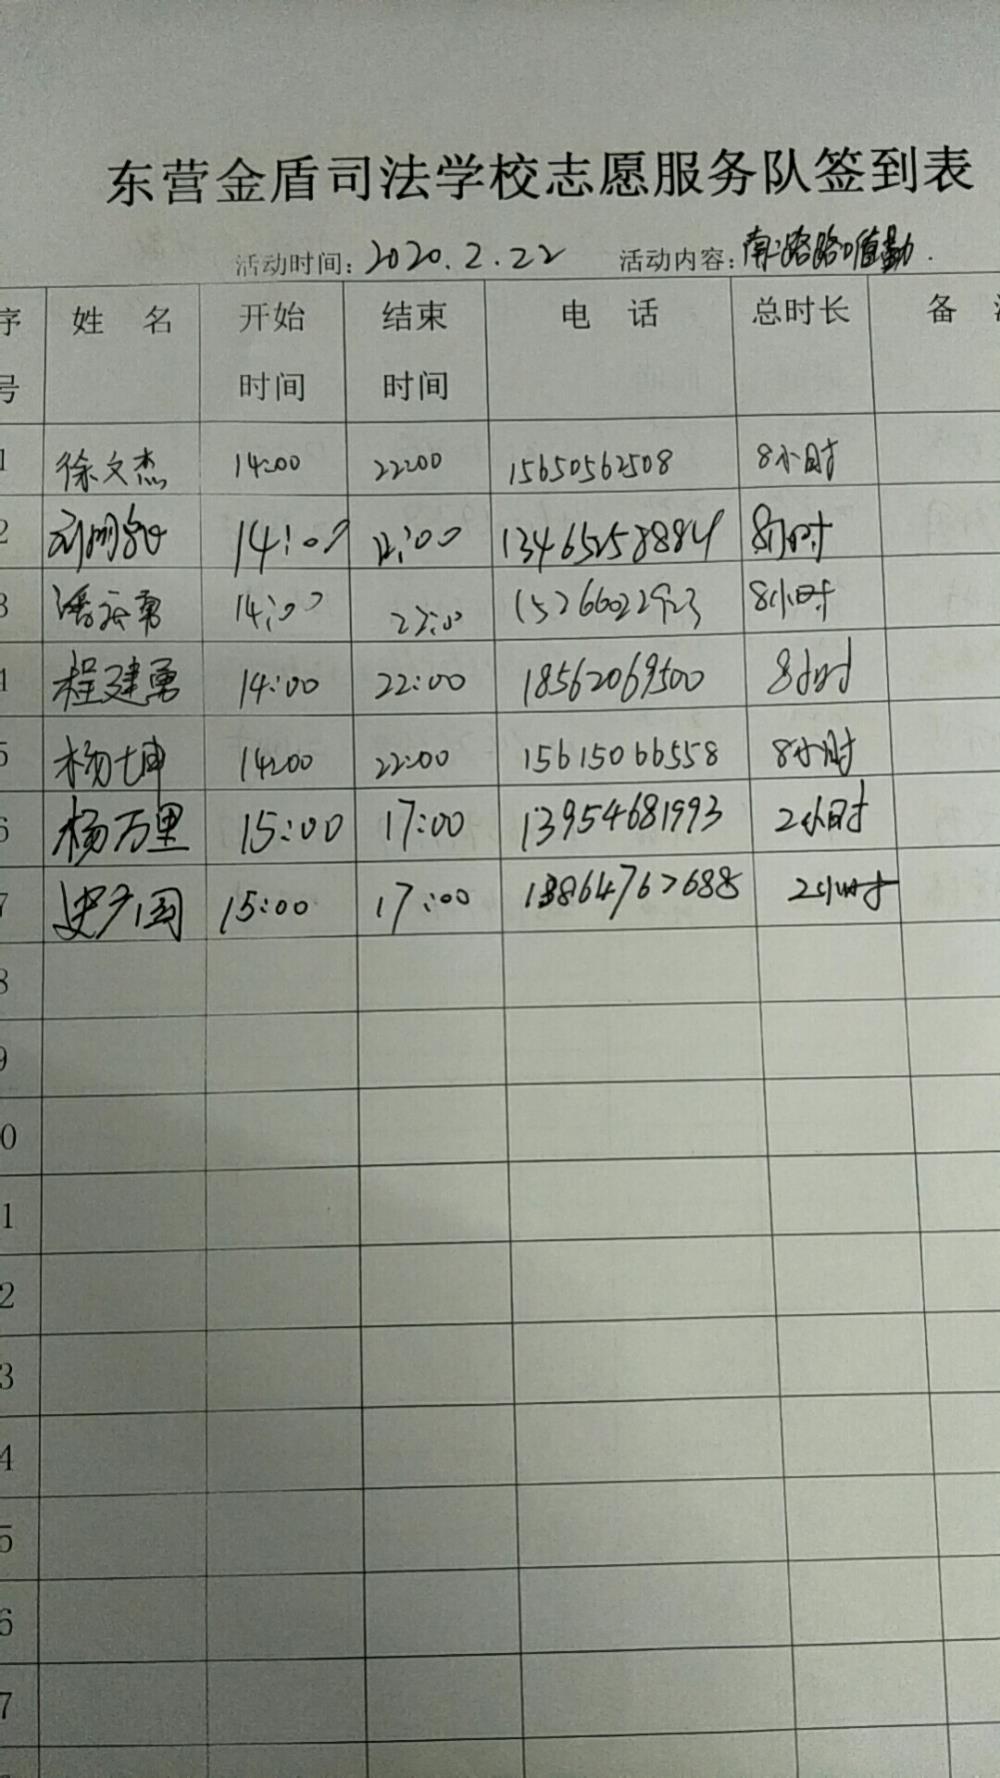 东营金盾司法学校志愿服务队签到表
活动时间：2020.2.22 活动内容：南二路路口值勤.
序号 姓名 开始时间 结束时间 电话 总时长 备
1 徐文杰 14:00 22:00 15650562508 8小时
2 14:00 22:00 13465258884 8小时
3 14:00 22:00 15266022923 8小时
4 程建勇 14:00 22:00 18562069500 8小时
5 杨七坤 14:00 22:00 15615066558 8小时
6 杨万里 15:00 17:00 13954681993 2小时
7 史广国 15:00 17:00 13864762688 2小时
8
9
0
1
2
3
4
5
6
7